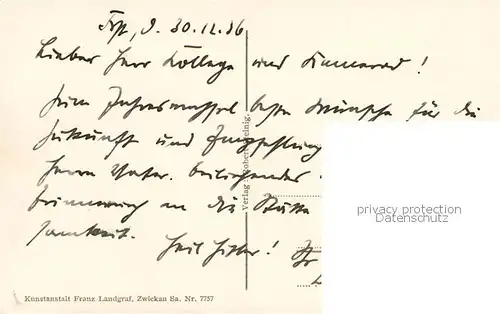 30.12.36
Lieber Herr Kollege und Kamerad!
Zum Jahreswechsel beste Wünsche für die
Zukunft und Empfehlung
Herrn Vater. beiliegendes
Erinnerung an die Stätte
Heil Hitler! Ihr
Verlag: Robert
privacy protection
datenschutz
Kunstanstalt Franz Landgraf, Zwickau Sa. Nr. 7757